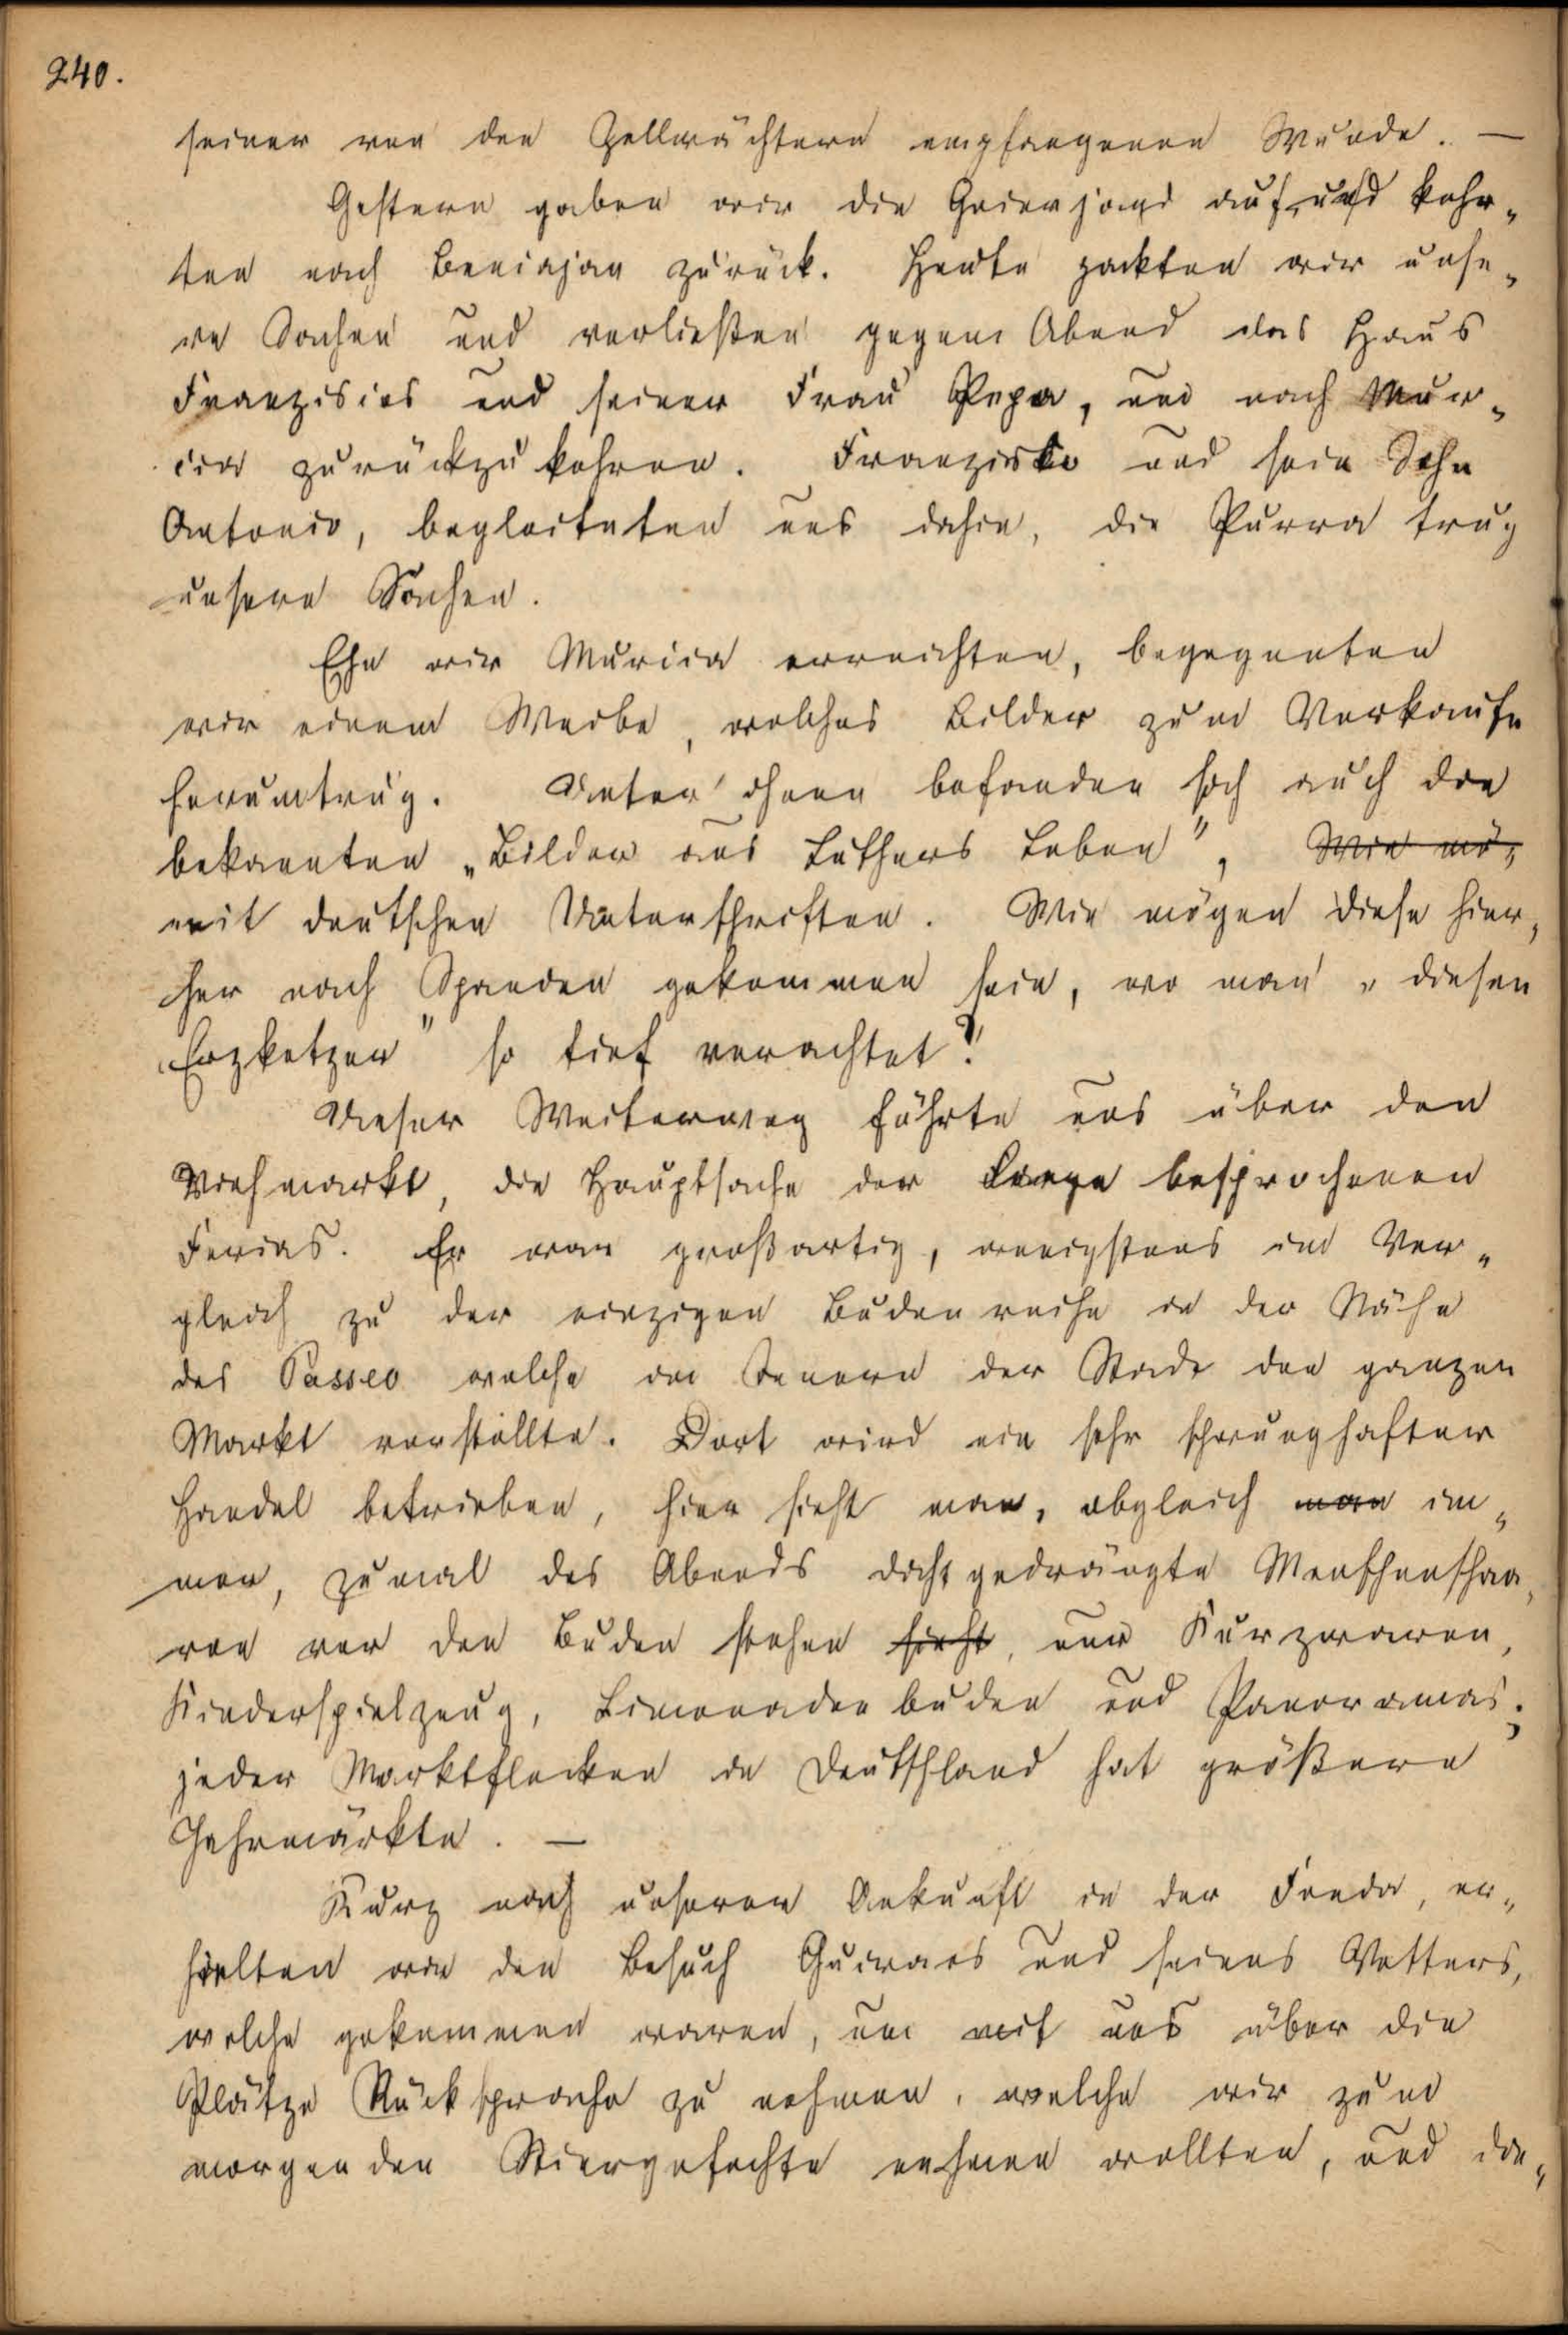 240.
seiner von den Zollwächtern empfangenen Wunde. —
Gestern gaben wir die Geierjagd auf und kehr-
ten nach Beniajan zurück. Heute packten wir unse-
re Sachen und verließen gegen Abend das Haus
Franziscos und seiner Frau Pepa, um nach Mur-
cia zurückzukehren. Franzisko und sein Sohn
Antonio, begleiteten uns dahin, die Purra trug
unsere Sachen.
Ehe wir Murcia erreichten, begegneten
wir einem Weibe, welches Bilder zum Verkaufe
herumtrug. Unter ihnen befanden sich auch die
bekannten „Bilder aus Luthers Leben", Wie mö-
mit deutschen Unterschriften. Wie mögen diese hier-
her nach Spanien gekommen sein, wo man „diesen
Erzketzer" so tief verachtet?
Unser Weiterweg führte uns über den
Viehmarkt, die Hauptsache der lange besprochenen
Ferias. Er war großartig, wenigstens im Ver-
gleich zu der einzigen Budenreihe in der Nähe
des Passeo welche im Innern der Stadt den ganzen
Markt vorstellte. Dort wird ein sehr schwunghafter
Handel betrieben, hier sieht man, obgleich man im-
mer, zumal des Abends dicht gedrängte Menschenschaa-
ren vor den Buden stehen sieht, nur Kurzwaren,
Kinderspielzeug, Limonadenbuden und Panoramas;
jeder Marktflecken in Deutschland hat größere
Jahrmärkte. —
Kurz nach unserer Ankunft in der Fonda, er-
hielten wir den Besuch Guiraos und seines Vetters,
welche gekommen waren, um mit uns über die
Plätze Rücksprache zu nehmen, welche wir zum
morgenden Stiergefechte nehmen wollten, und die-